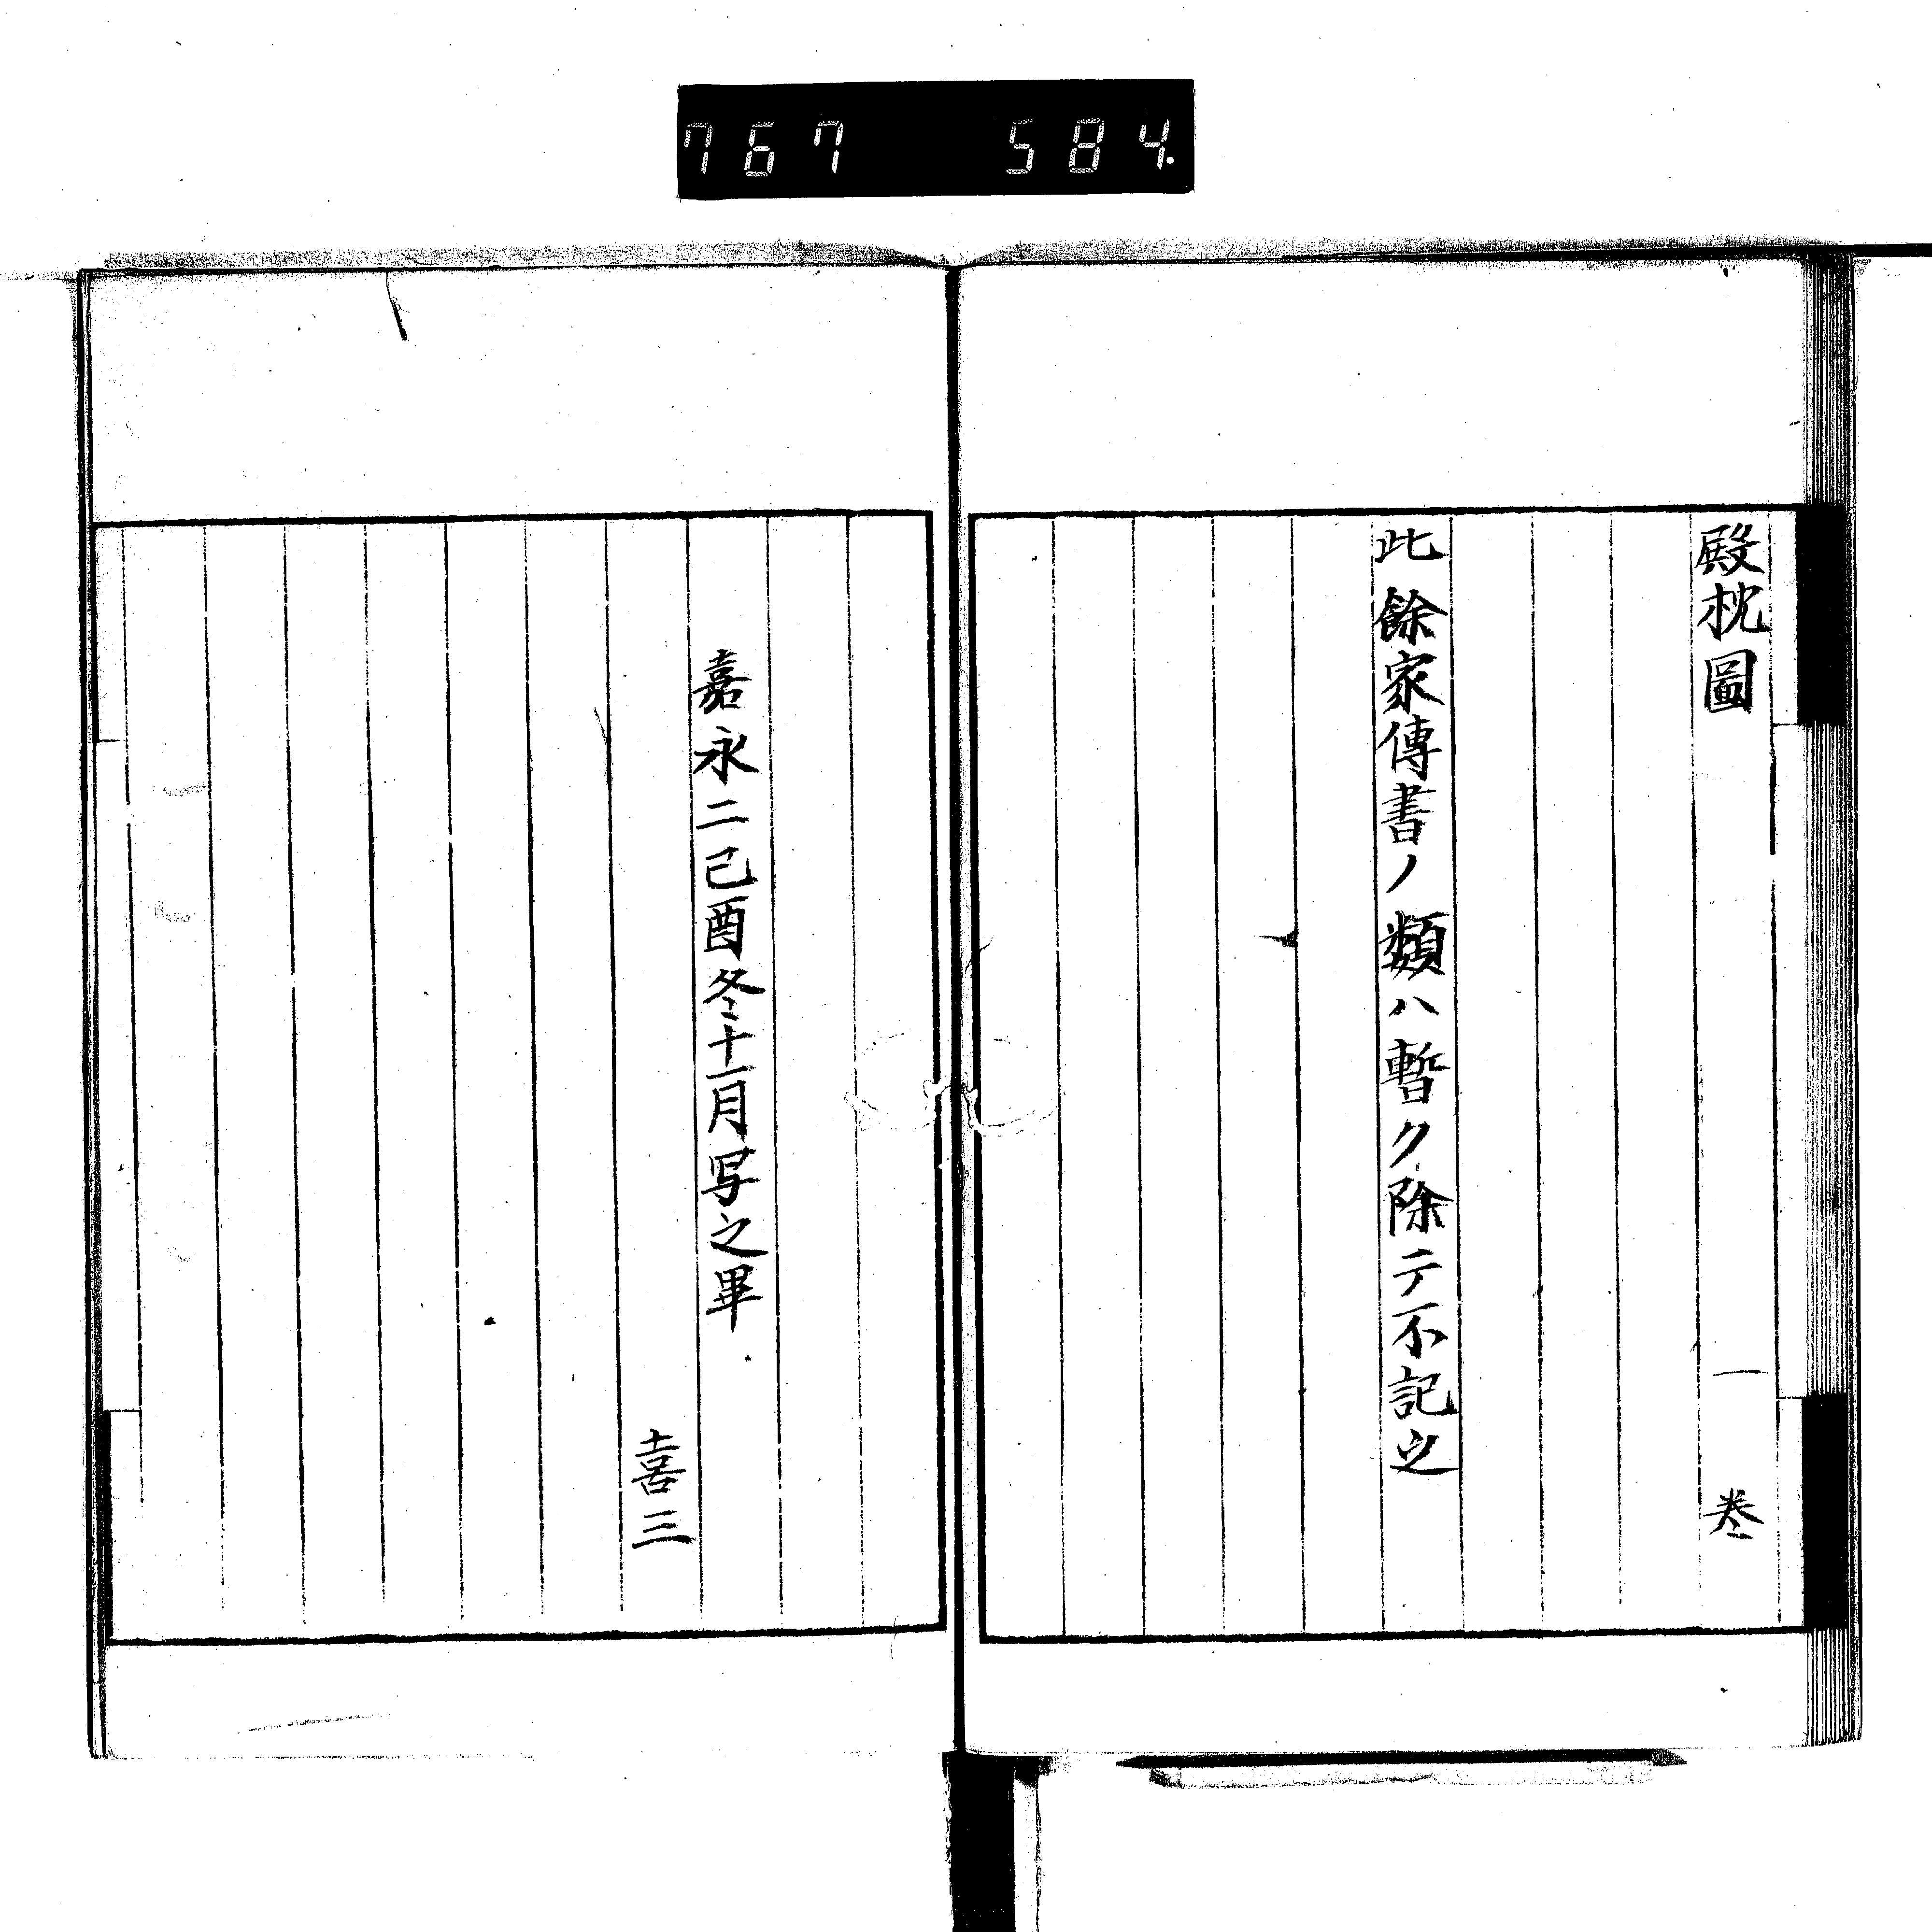 767 584.
殿枕圖 一巻
此餘家傳書ノ類ハ暫ク除テ不記之
嘉永二己酉冬十一月写之畢
喜三